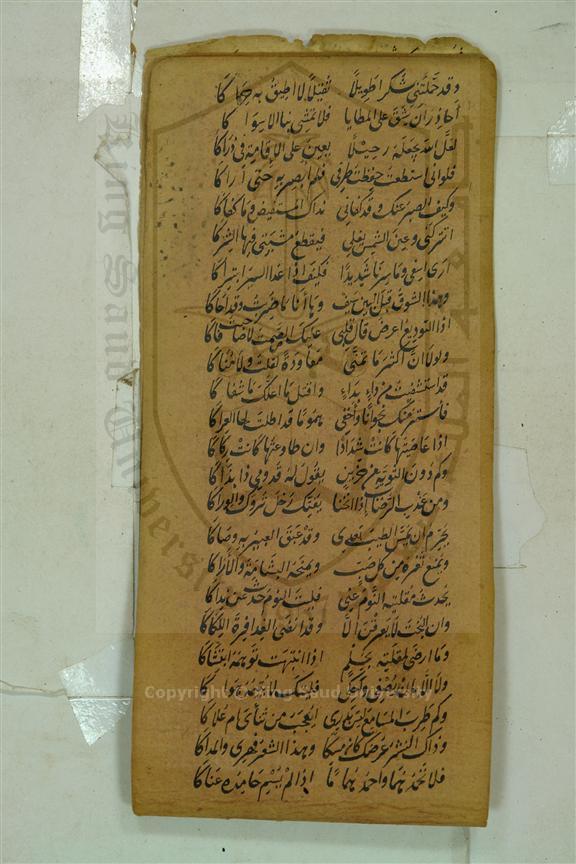 وقد حملتني شكرا طويلا ثقيلا لا اطيق به حراكا
أحاذر ان يشق على المطايا فلا تمشي بنا الا سواكا
لعل الله يجعله رحيلا يعين على الاقامة في ذراكا
فلو اني استطعت حفظت طرفي فلم ابصر به حتى أراكا
وكيف الصبر عنك وقد كفاني نداك المستفيض وما كفاكا
اتتركني وعين الشمس نعلي فيقطع مشيتي فيها الشراكا
ارى اسفي وما سرنا شديدا فكيف اذا غدا السير ابتراكا
وهذا الشوق قبل البين سيف وها أنا ما ضربت وقد احاكا
اذا التوديع اعرض قال قلبي عليك الصمت لا صاحبت فاكا
ولولا ان اكثر ما تمنى معاودة لقلت ولا مناكا
قد استشفيت من داء بداء واقتل ما اعلك ما شفاكا
فأستر منك نجوانا وأخفي هموما قد اطلت لها العراكا
اذا عاصيتها كانت شدادا وان طاوعتها كانت ركاكا
وكم دون الثوية من حزين يقول له قدومي ذا بذاكا
ومن عذب الرضاب اذا انخنا يقبل رحل تروك والوراكا
يحرم ان يمس الطيب بعدي وقد عبق العبير به وصاكا
ويمنع ثغره من كل صب ويمنحه البشامة والأراكا
يحدث مقلتيه النوم عني فليت النوم حدث عن نداكا
وان البخت لا يعرقن الا وقد انضى العذافرة اللكاكا
وما ارضى لمقلته بحلم اذا انتبهت توهمه ابتشاكا
ولا الا بان يصغي واحكي فليتك لا يتيمه هواكا
وكم طرب المسامع ليس يدري ايعجب من ثنائي ام علاكا
وذاك النشر عرضك كان مسكا وهذا الشعر فهري والمداكا
فلا تحمدهما واحمد هماما اذا لم يسم حامده عناكا
Copyright © King Saud University
King Saud University